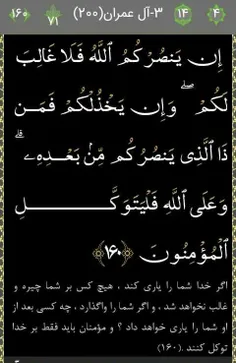 ۱۶۰ ۷۱ ۳-آل عمران(۲۰۰) ۱۴ ۴
إِن يَنصُرْكُمُ ٱللَّهُ فَلَا غَالِبَ
لَكُمْ ۖ وَإِن يَخْذُلْكُمْ فَمَن
ذَا ٱلَّذِى يَنصُرُكُم مِّنۢ بَعْدِهِۦ ۗ
وَعَلَى ٱللَّهِ فَلْيَتَوَكَّلِ
ٱلْمُؤْمِنُونَ ﴿۱۶۰﴾
اگر خدا شما را یاری کند ، هیچ کس بر شما چیره و
غالب نخواهد شد ، و اگر شما را واگذارد ، چه کسی بعد از
او شما را یاری خواهد داد ؟ و مؤمنان باید فقط بر خدا
توکل کنند .(۱۶۰)